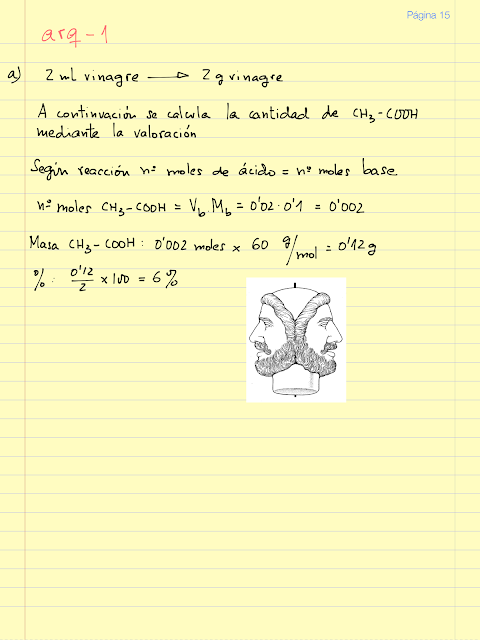 Página 15
arq-1
a) 2 ml vinagre → 2 g vinagre
A continuación se calcula la cantidad de CH₃-COOH
mediante la valoración
Según reacción nº moles de ácido = nº moles base
nº moles CH₃-COOH = V_b · M_b = 0'02 · 0'1 = 0'002
Masa CH₃-COOH: 0'002 moles × 60 g/mol = 0'12 g
%: 0'12/2 × 100 = 6%